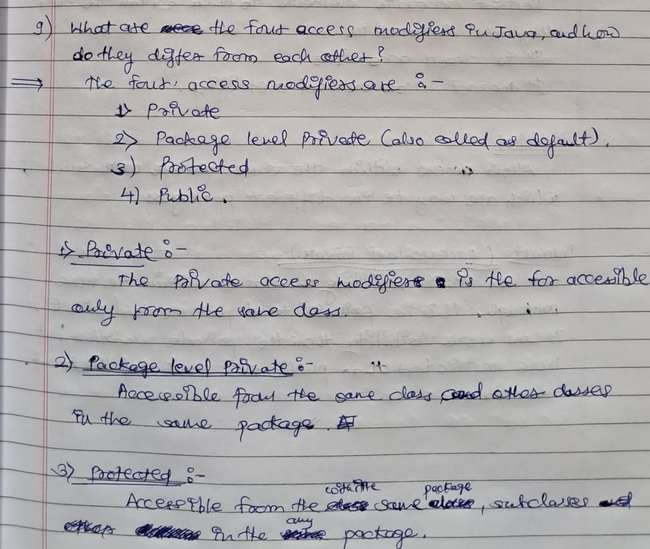 9) What are the four access modifiers in Java, and how
do they differ from each other?
⇒ The four access modifiers are :-
1) Private
2) Package level private (also called as default).
3) Protected
4) Public.
1) Private :-
The private access modifiers is the for accessible
only from the same class.
2) Package level private :-
Accessible from the same class and other classes
in the same package.
3) Protected :-
Accessible from the within the same package, subclasses
in the any package.